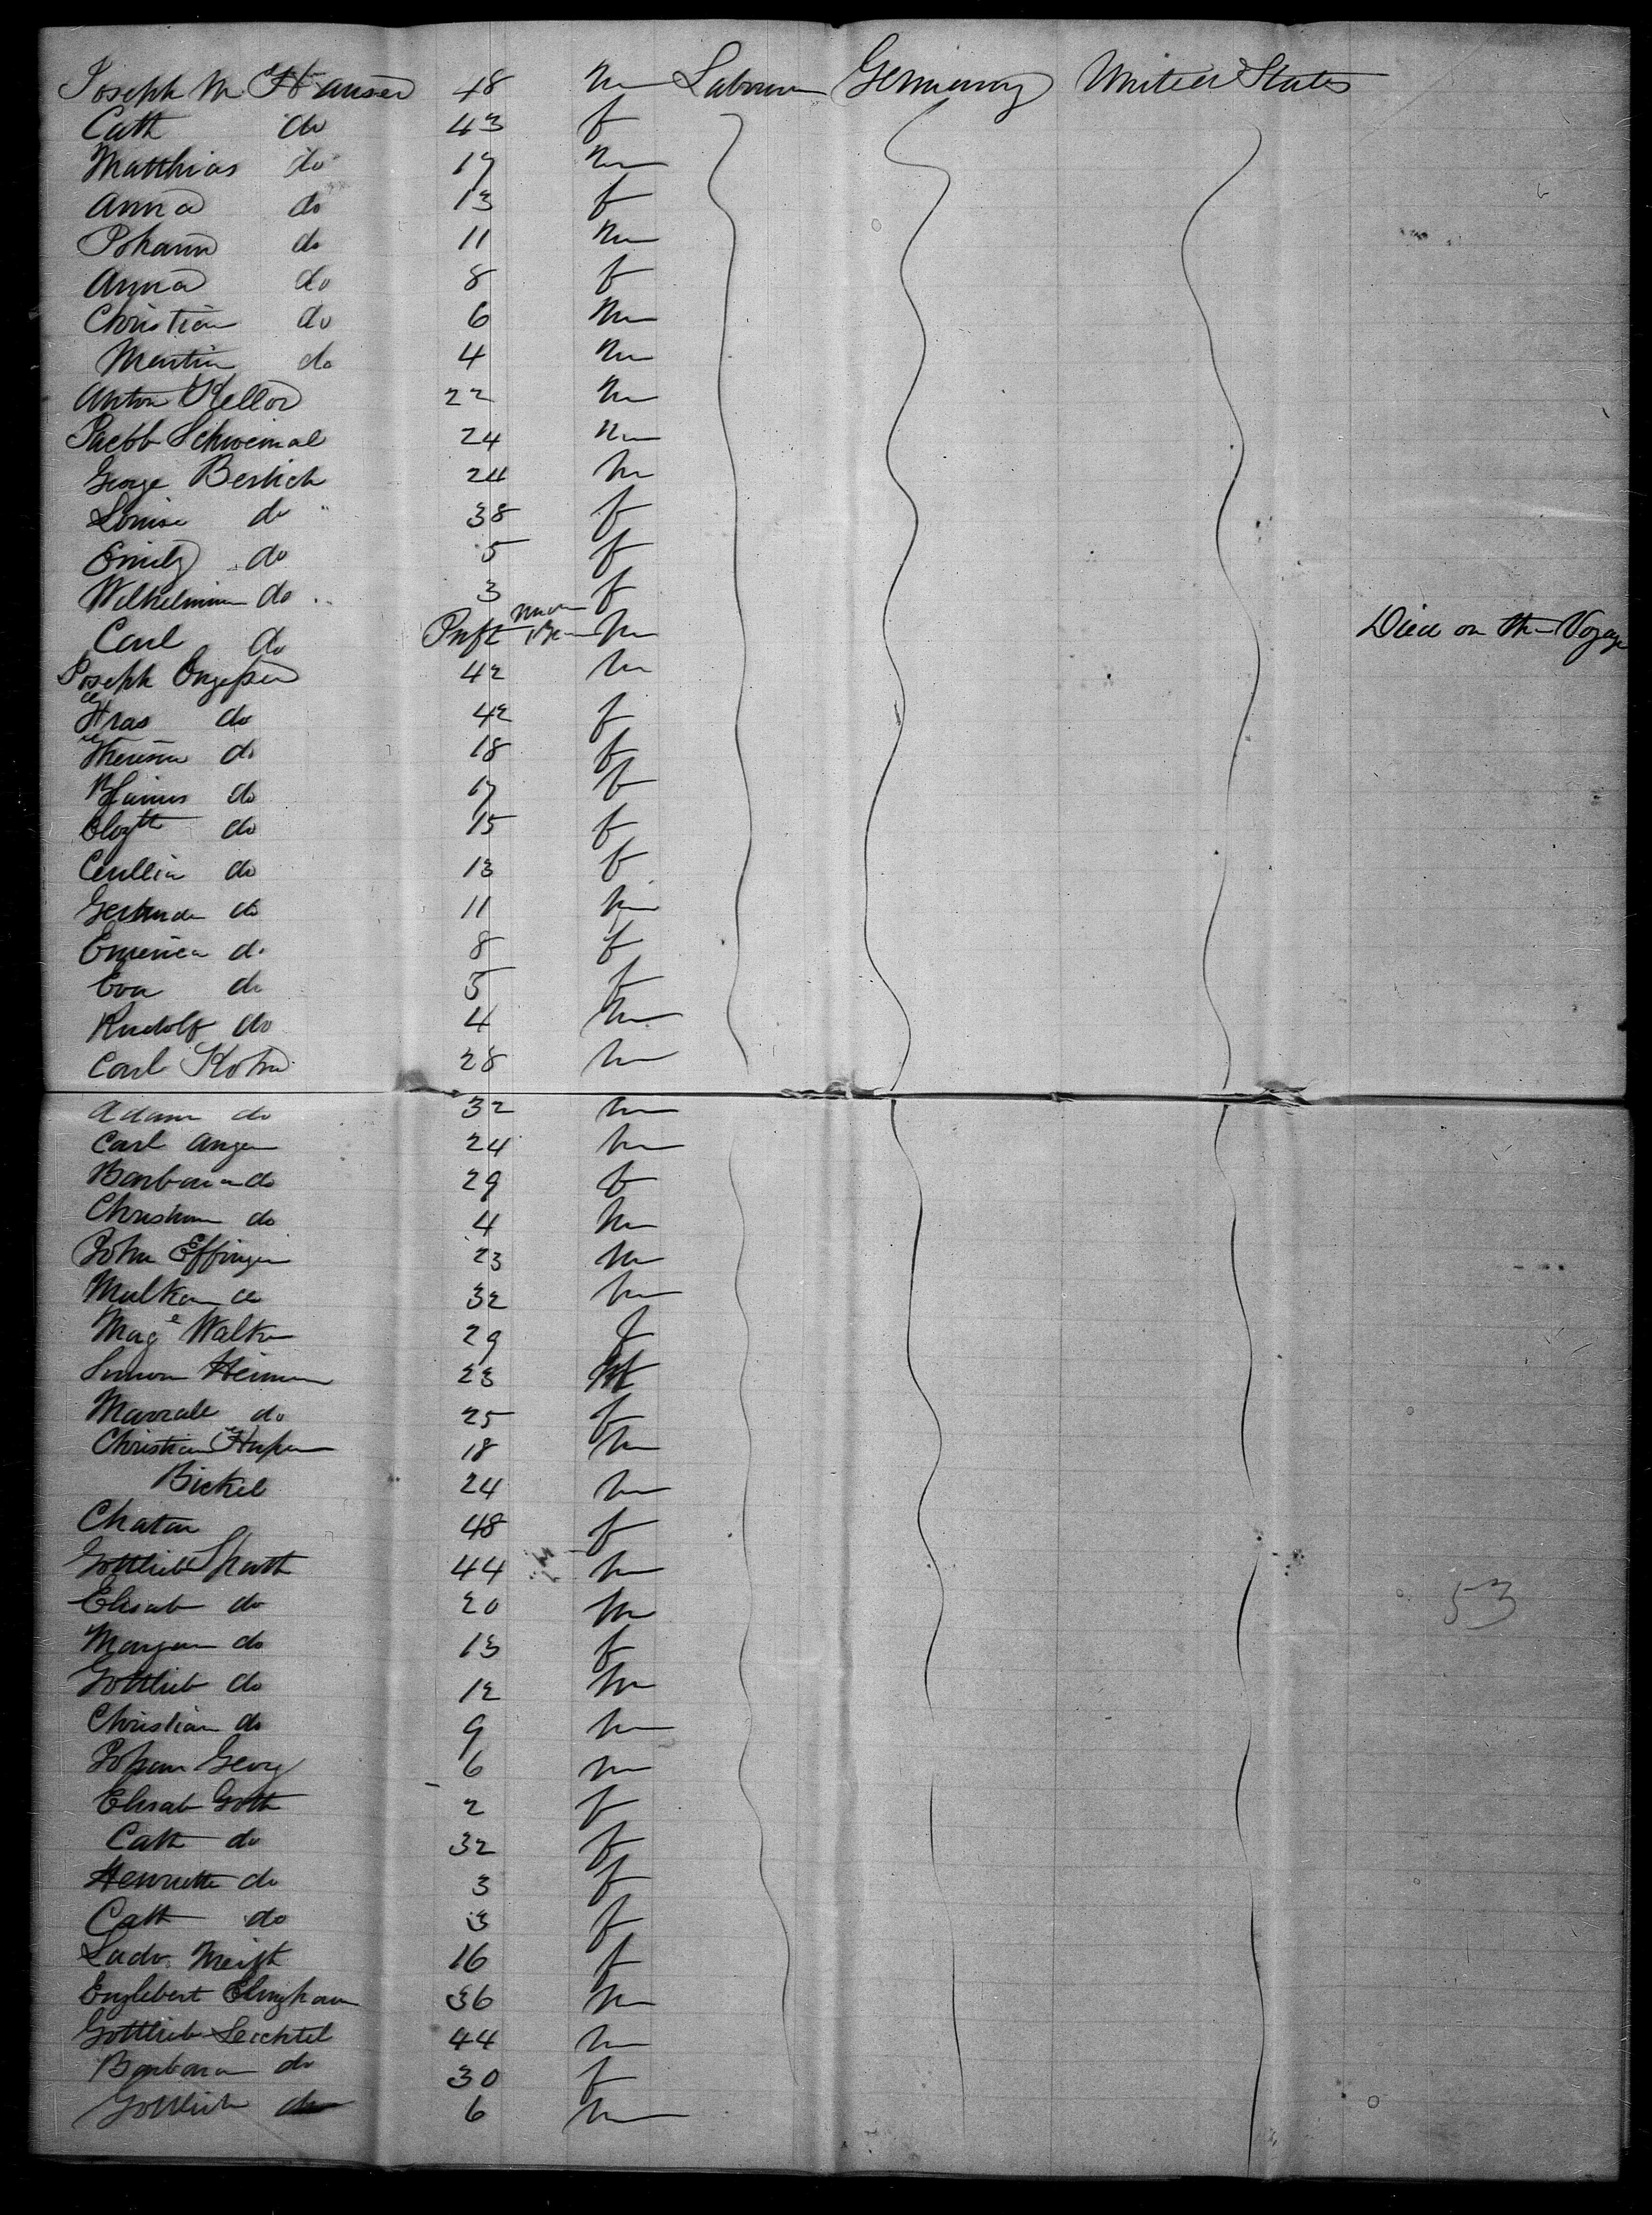 Joseph M Hauser 48 m Labourer Germany United States
Cath do 43 f
Matthias do 17 m
Anna do 13 f
Johann do 11 m
Anna do 8 f
Christian do 6 m
Martin do 4 m
Anton Keller 22 m
Jacob Schweinal 24 m
George Berlich 24 m
Louise do 38 f
Emily do 5 f
Wilhelmina do 3 f
Carl do Inft m Died on the Voyage
Joseph 42 m
do 42 f
Theresia do 18 f
do 17 f
Elizth do 15 f
do 13 f
Gertrude do 11 m
do 8 f
Eva do 5 f
Rudolf do 4 m
Carl Kohn 28 m
Adam do 32 m
Carl Anger 24 m
Barbara do 29 f
Christian do 4 m
John Effinger 23 m
32 m
Mage Walker 29 f
Simon 23 M
do 25 f
Christian 18 m
Bickel 24 m
48 f
Gottlieb 44 m
Elisab do 20 m
do 13 f
Gottlieb do 12 m
Christian do 9 m
Johann Georg 6 m
Elisab Goth 2 f
Cath do 32 f
Henriette do 3 f
Cath do 3 f
Ludv. 16 f
Englebert 36 m
Gottlieb Leichtel 44 m
Barbara do 30 f
Gottlieb do 6 m
53